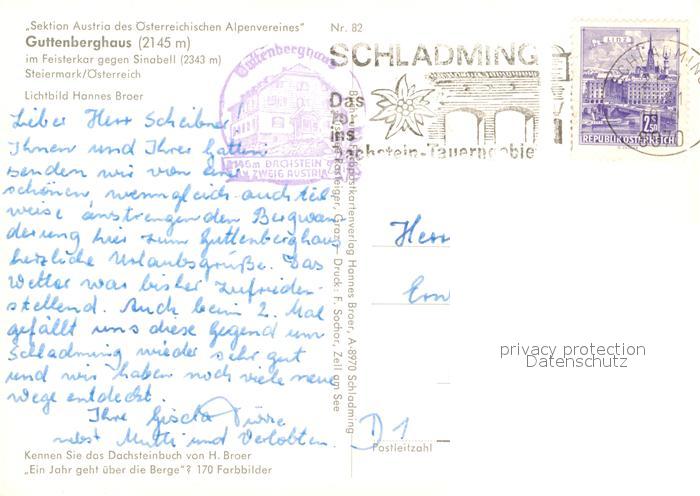 „Sektion Austria des Österreichischen Alpenvereines"
Guttenberghaus (2145 m)
im Feisterkar gegen Sinabell (2343 m)
Steiermark/Österreich
Lichtbild Hannes Broer
Nr. 82
Lieber Herr Scheibner!
Ihnen und Ihrer Gattin
senden wir von einer
schönen, wenngleich auch teil-
weise anstrengenden Bergwan-
derung hier zum Guttenberghaus
herzliche Urlaubsgrüße. Das
Wetter war bisher zufrieden-
stellend. Auch beim 2. Mal
gefällt uns diese Gegend um
Schladming wieder sehr gut
und wir haben noch viele neue
Wege entdeckt.
Ihre Gisela
nebst Mutti und Verlobten.
Kennen Sie das Dachsteinbuch von H. Broer
„Ein Jahr geht über die Berge"? 170 Farbbilder
Guttenberghaus
2146m DACHSTEIN
ZWEIG AUSTRIA
postkartenverlag Hannes Broer, A-8970 Schladming
Rasteiger, Graz - Druck: F. Sochor, Zell am See
SCHLADMING
Das
Tor
ins
Dachstein-Tauerngebiet
LINZ
2.50
REPUBLIK ÖSTERREICH
Herr
D 1
Postleitzahl
privacy protection
Datenschutz